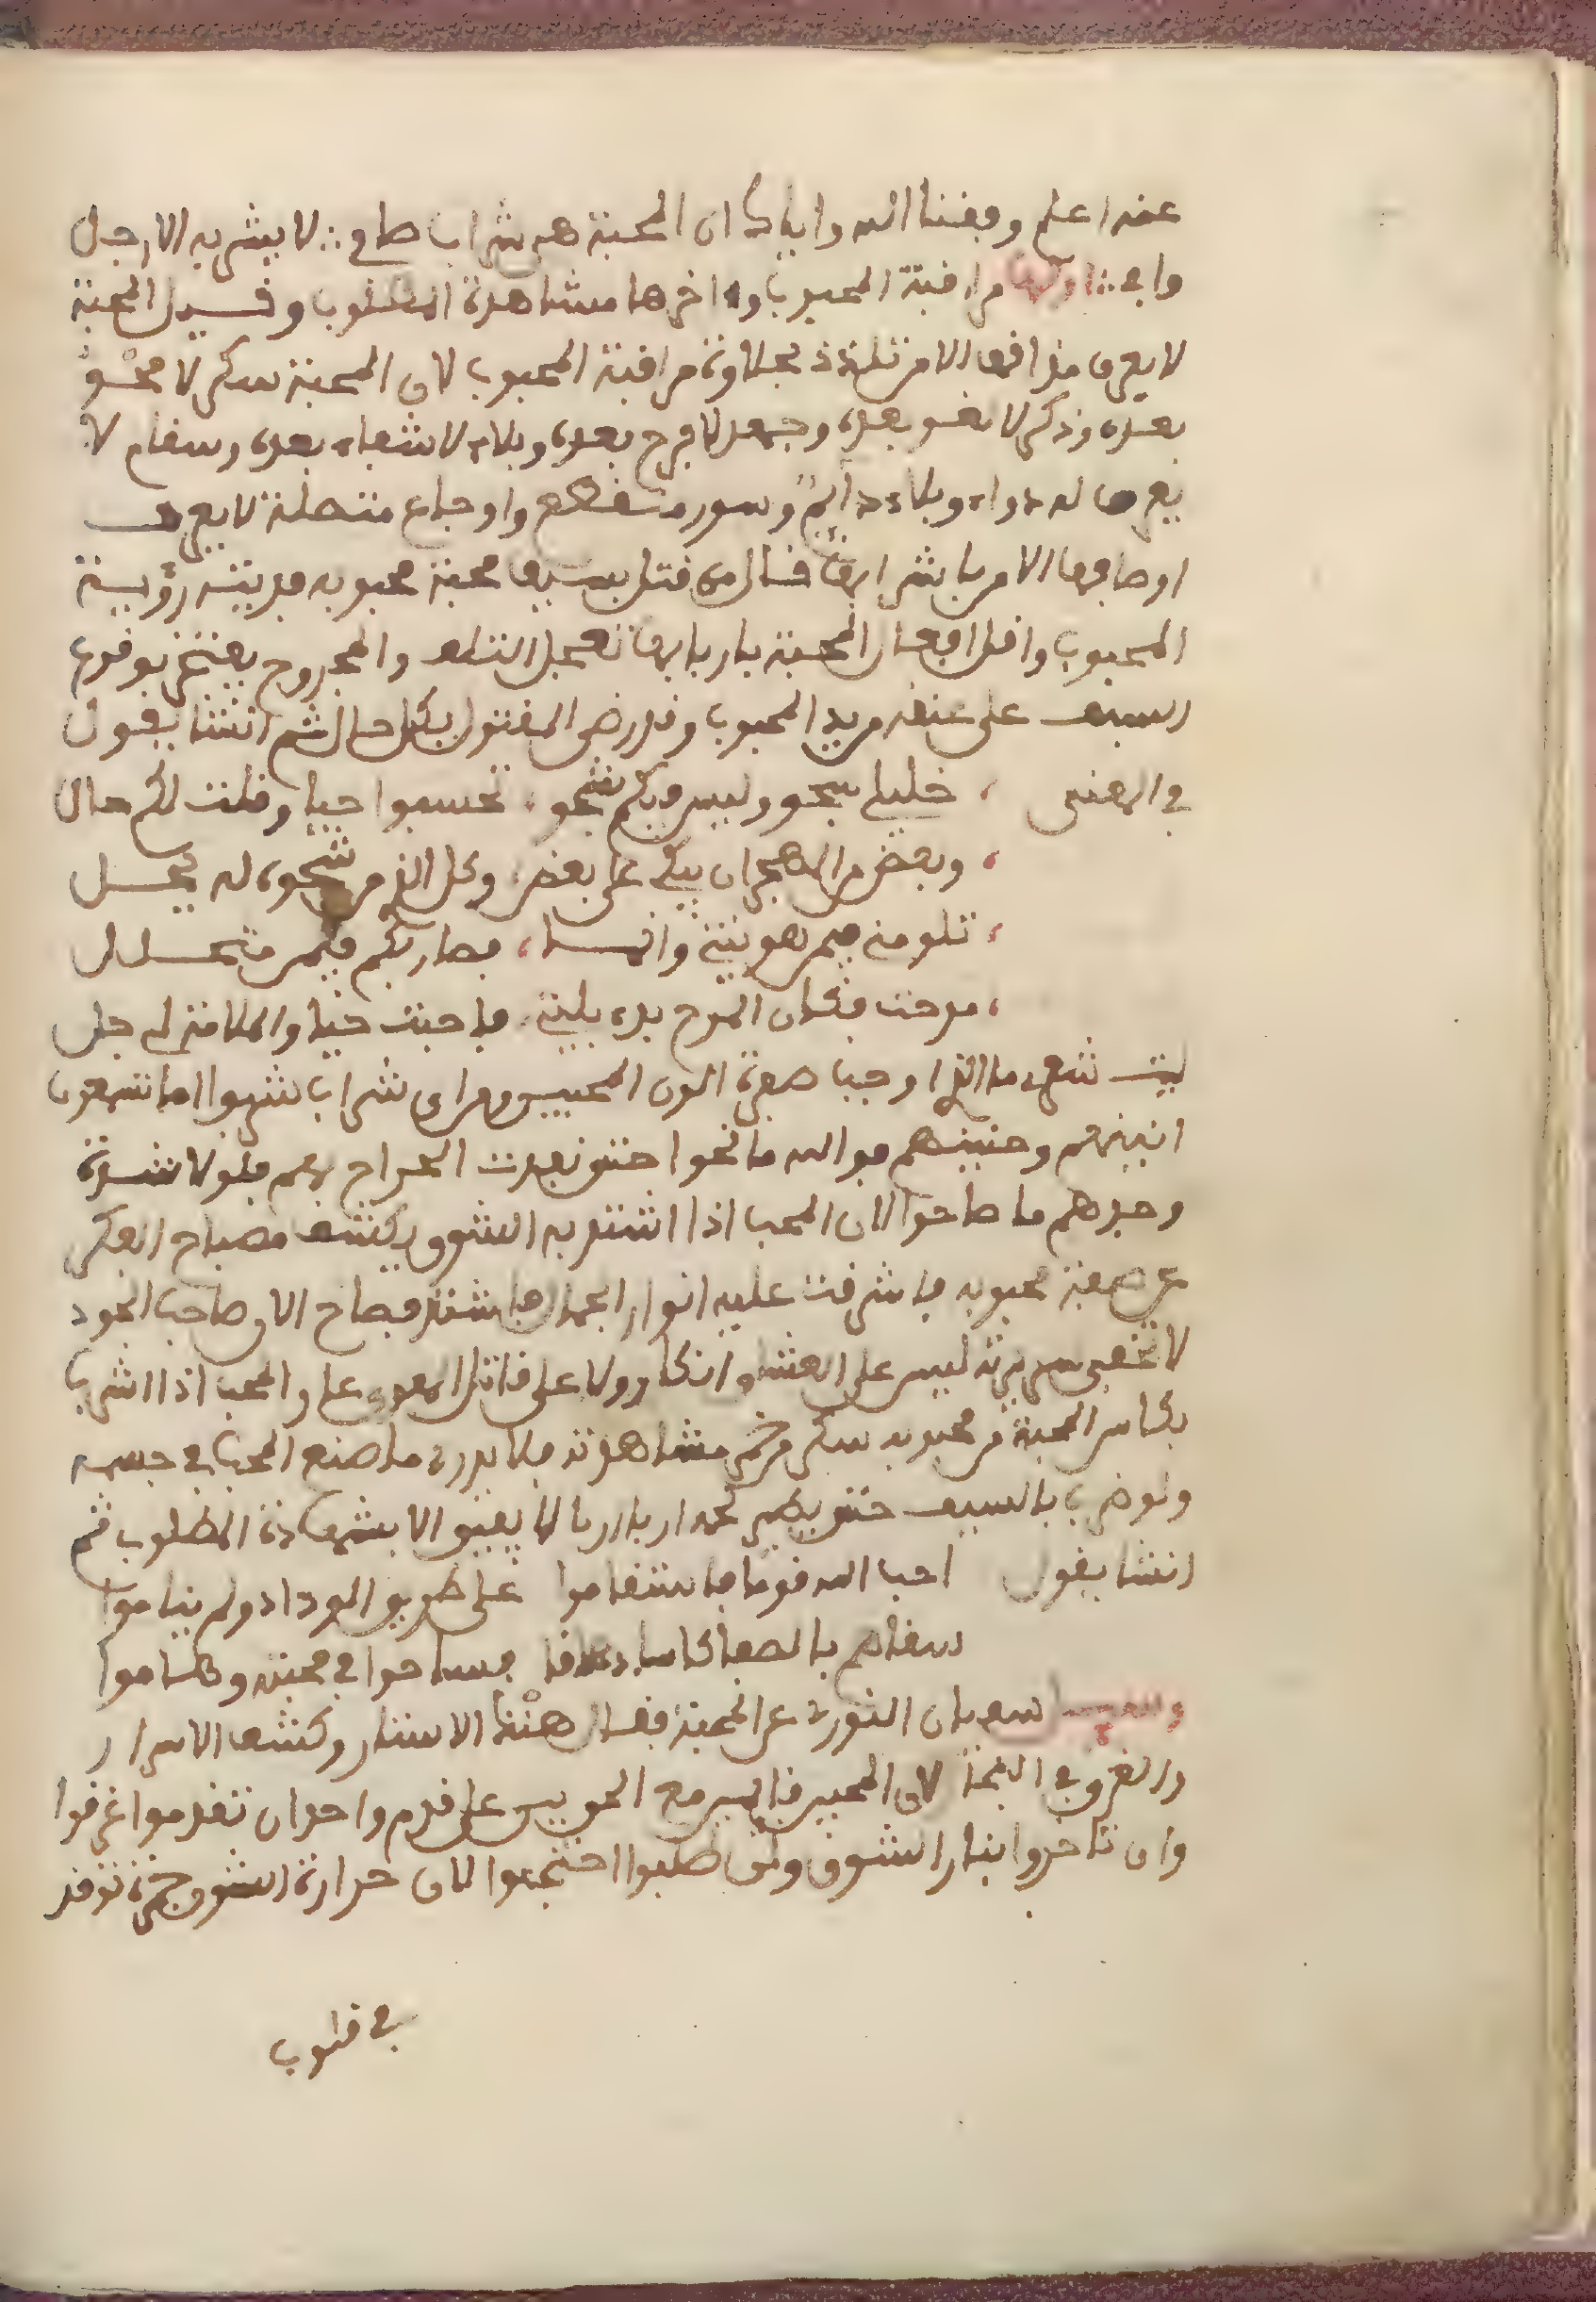 عنه اعلم وفقنا الله واياك ان المحبة هي شراب صافي لا يشربه الا رجل
وافي اولها مراقبة المحبوب واخرها مشاهدة المطلوب وقيل المحبة
لا يعرف مذاقها الا من تلذذ بحلاوة مراقبة المحبوب لان المحبة سكر لا صحو
بعده وذكر لا بعده وجهد لا فرح بعده وبلاء لا شفاء بعده وسقام لا
يعرف له دواء وبلاء دائم وسور منقطع واوجاع متصلة لا يعرف
اوصافها الا من باشرها قال من قتل بسيف محبة محبوبه فديته رؤية
المحبوب واقل افعال المحبة باربابها تعجل التلف والمجروح يفتخر بوقوع
السيف على عنقه من يد المحبوب وقد رضى المقتول بكل حال ثم انشا يقول
في المعنى خليلي شجو وليس فيكم شجو تحسبوا حبا وقلت لكم حال
وبعض من الهجران يبكي على بعض وكل الذي من شجوه له يحل
تلومني فيمن هويته وانسا فصار بكم فيمن
مزحت فكان المزح بدء بليتي فاحببت حبا والملامة لي جل
ليت شعري ما الذي اوجب صفرة الون المحبين ومن اي شراب شربوا اما تسمعون
انينهم وحنينهم فوالله ما نحوا حتى نفدت الجراح بهم فلولا شدة
وجدهم ما صاحوا لان المحب اذا اشتد به الشوق يكشف مصباح الفكر
عن صفة محبوبه فاشرقت عليه انوار الجمال فاشتد فصاح الان صاحب الجود
لا تخفى سريرته ليس على العشق انكار ولا على قاتل الهوى عار والمحب اذا اشرب
بكاس المحبة من محبوبه سكر من خمر مشاهدته فلا يدري ما صنع المحب في جسمه
ولو ضرب بالسيف حتى يطير لحمه اربا اربا لا يفيق الا بمشاهدة المطلوب ثم
انشا يقول احب الله قوما فاستقاموا على طريق الوداد ولم يناموا
سقاهم بالصفا كاسا دهاقا فساحوا في محبته وهاموا
وسئل سفيان الثوري عن المحبة فقال هتك الاستار وكشف الاسرار
والغرق في البحار لان المحبين قايمين مع المحبوبين على قدم واحد ان تقدموا غرقوا
وان تاخروا بنار الشوق ولن طلبوا احتجبوا لان حرارة الشوق جمرة توقد
في قلوب